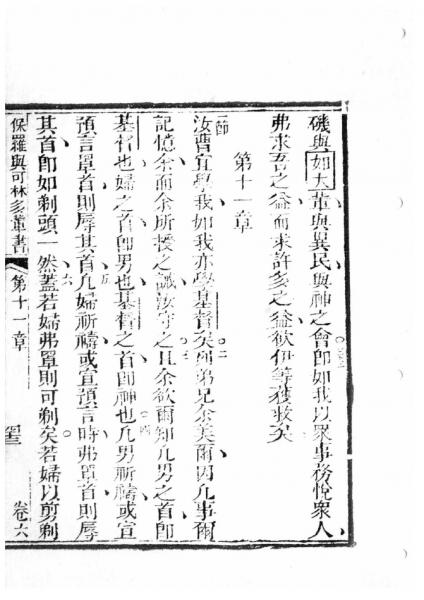 磯與如大輩與異民與神之會即如我以眾事務悅眾人
弗求吾之益而求許多之益欲伊等獲救矣
第十一章
一節
汝曹宜學我如我亦學基督矣列弟兄余美爾因凡事爾
二
記憶余而余所授之誡汝守之且余欲爾知凡男之首即
三
基督也婦之首即男也基督之首即神也凡男祈禱或宣
四
預言罩首則辱其首凡婦祈禱或宣預言時弗罩首則辱
五
其首即如剃頭一然蓋若婦弗罩則可剃矣若婦以剪剃
六
保羅與可林多輩書
第十一章
卷六